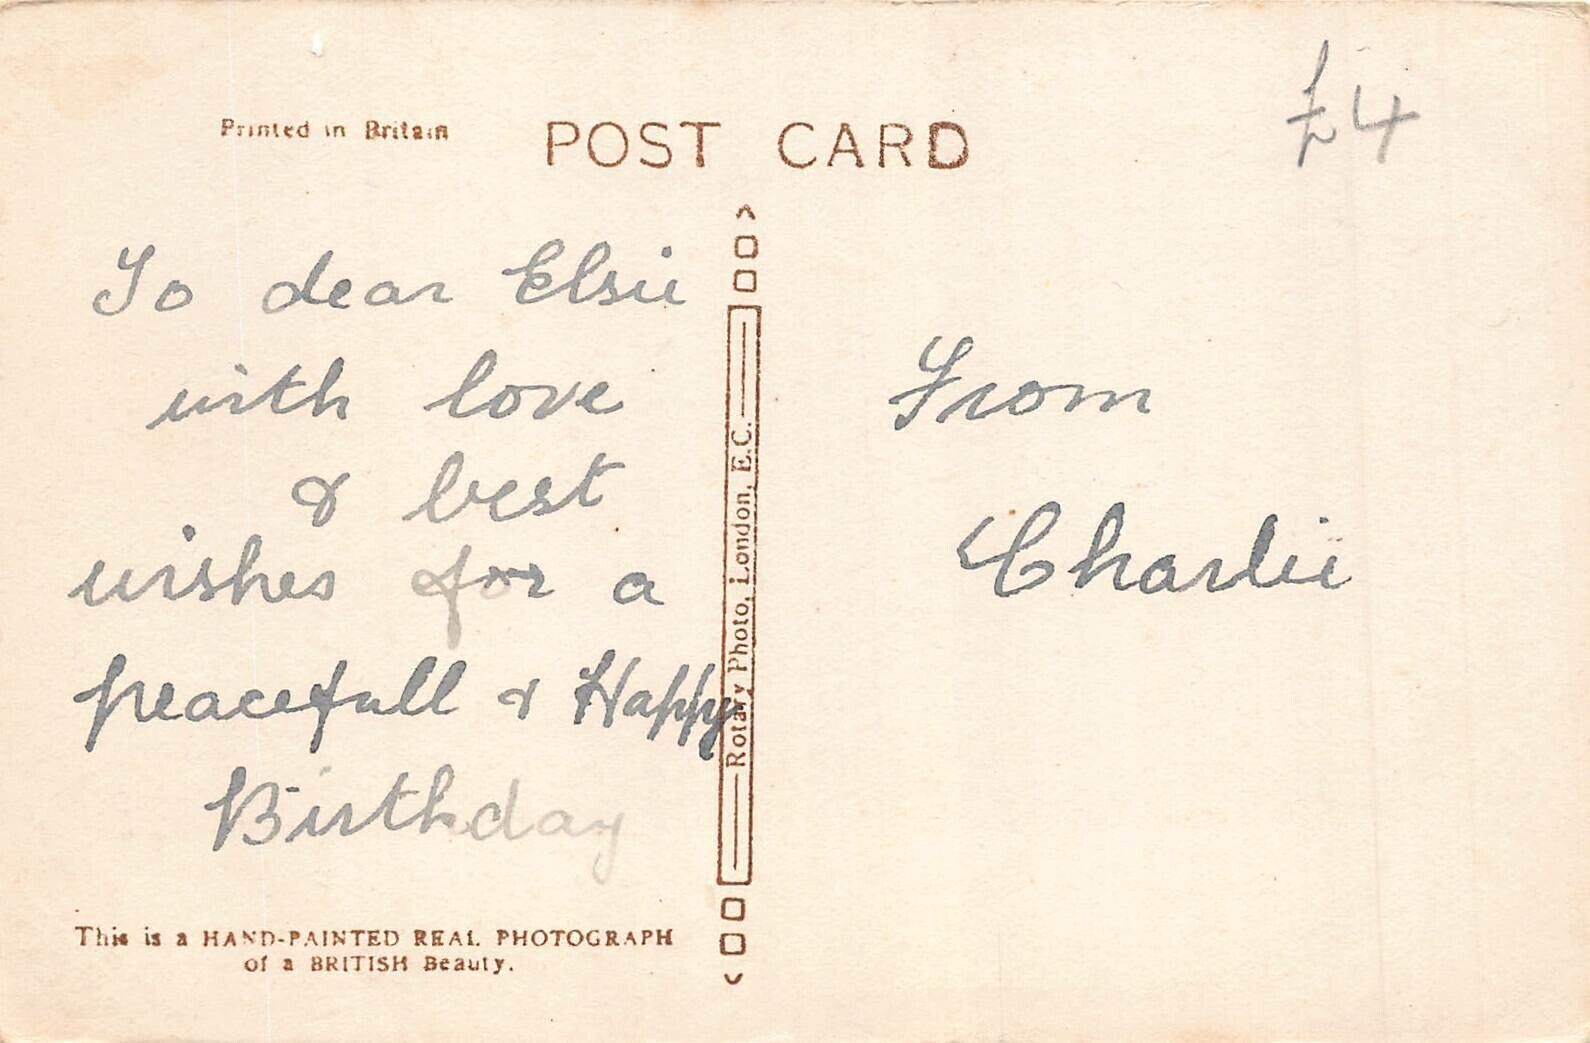 Printed in Britain
POST CARD
£4
To dear Elsie
with love
& best
wishes for a
peacefull & Happy
Birthday
From
Charlie
Rotary Photo, London, E.C.
This is a HAND-PAINTED REAL PHOTOGRAPH
of a BRITISH Beauty.